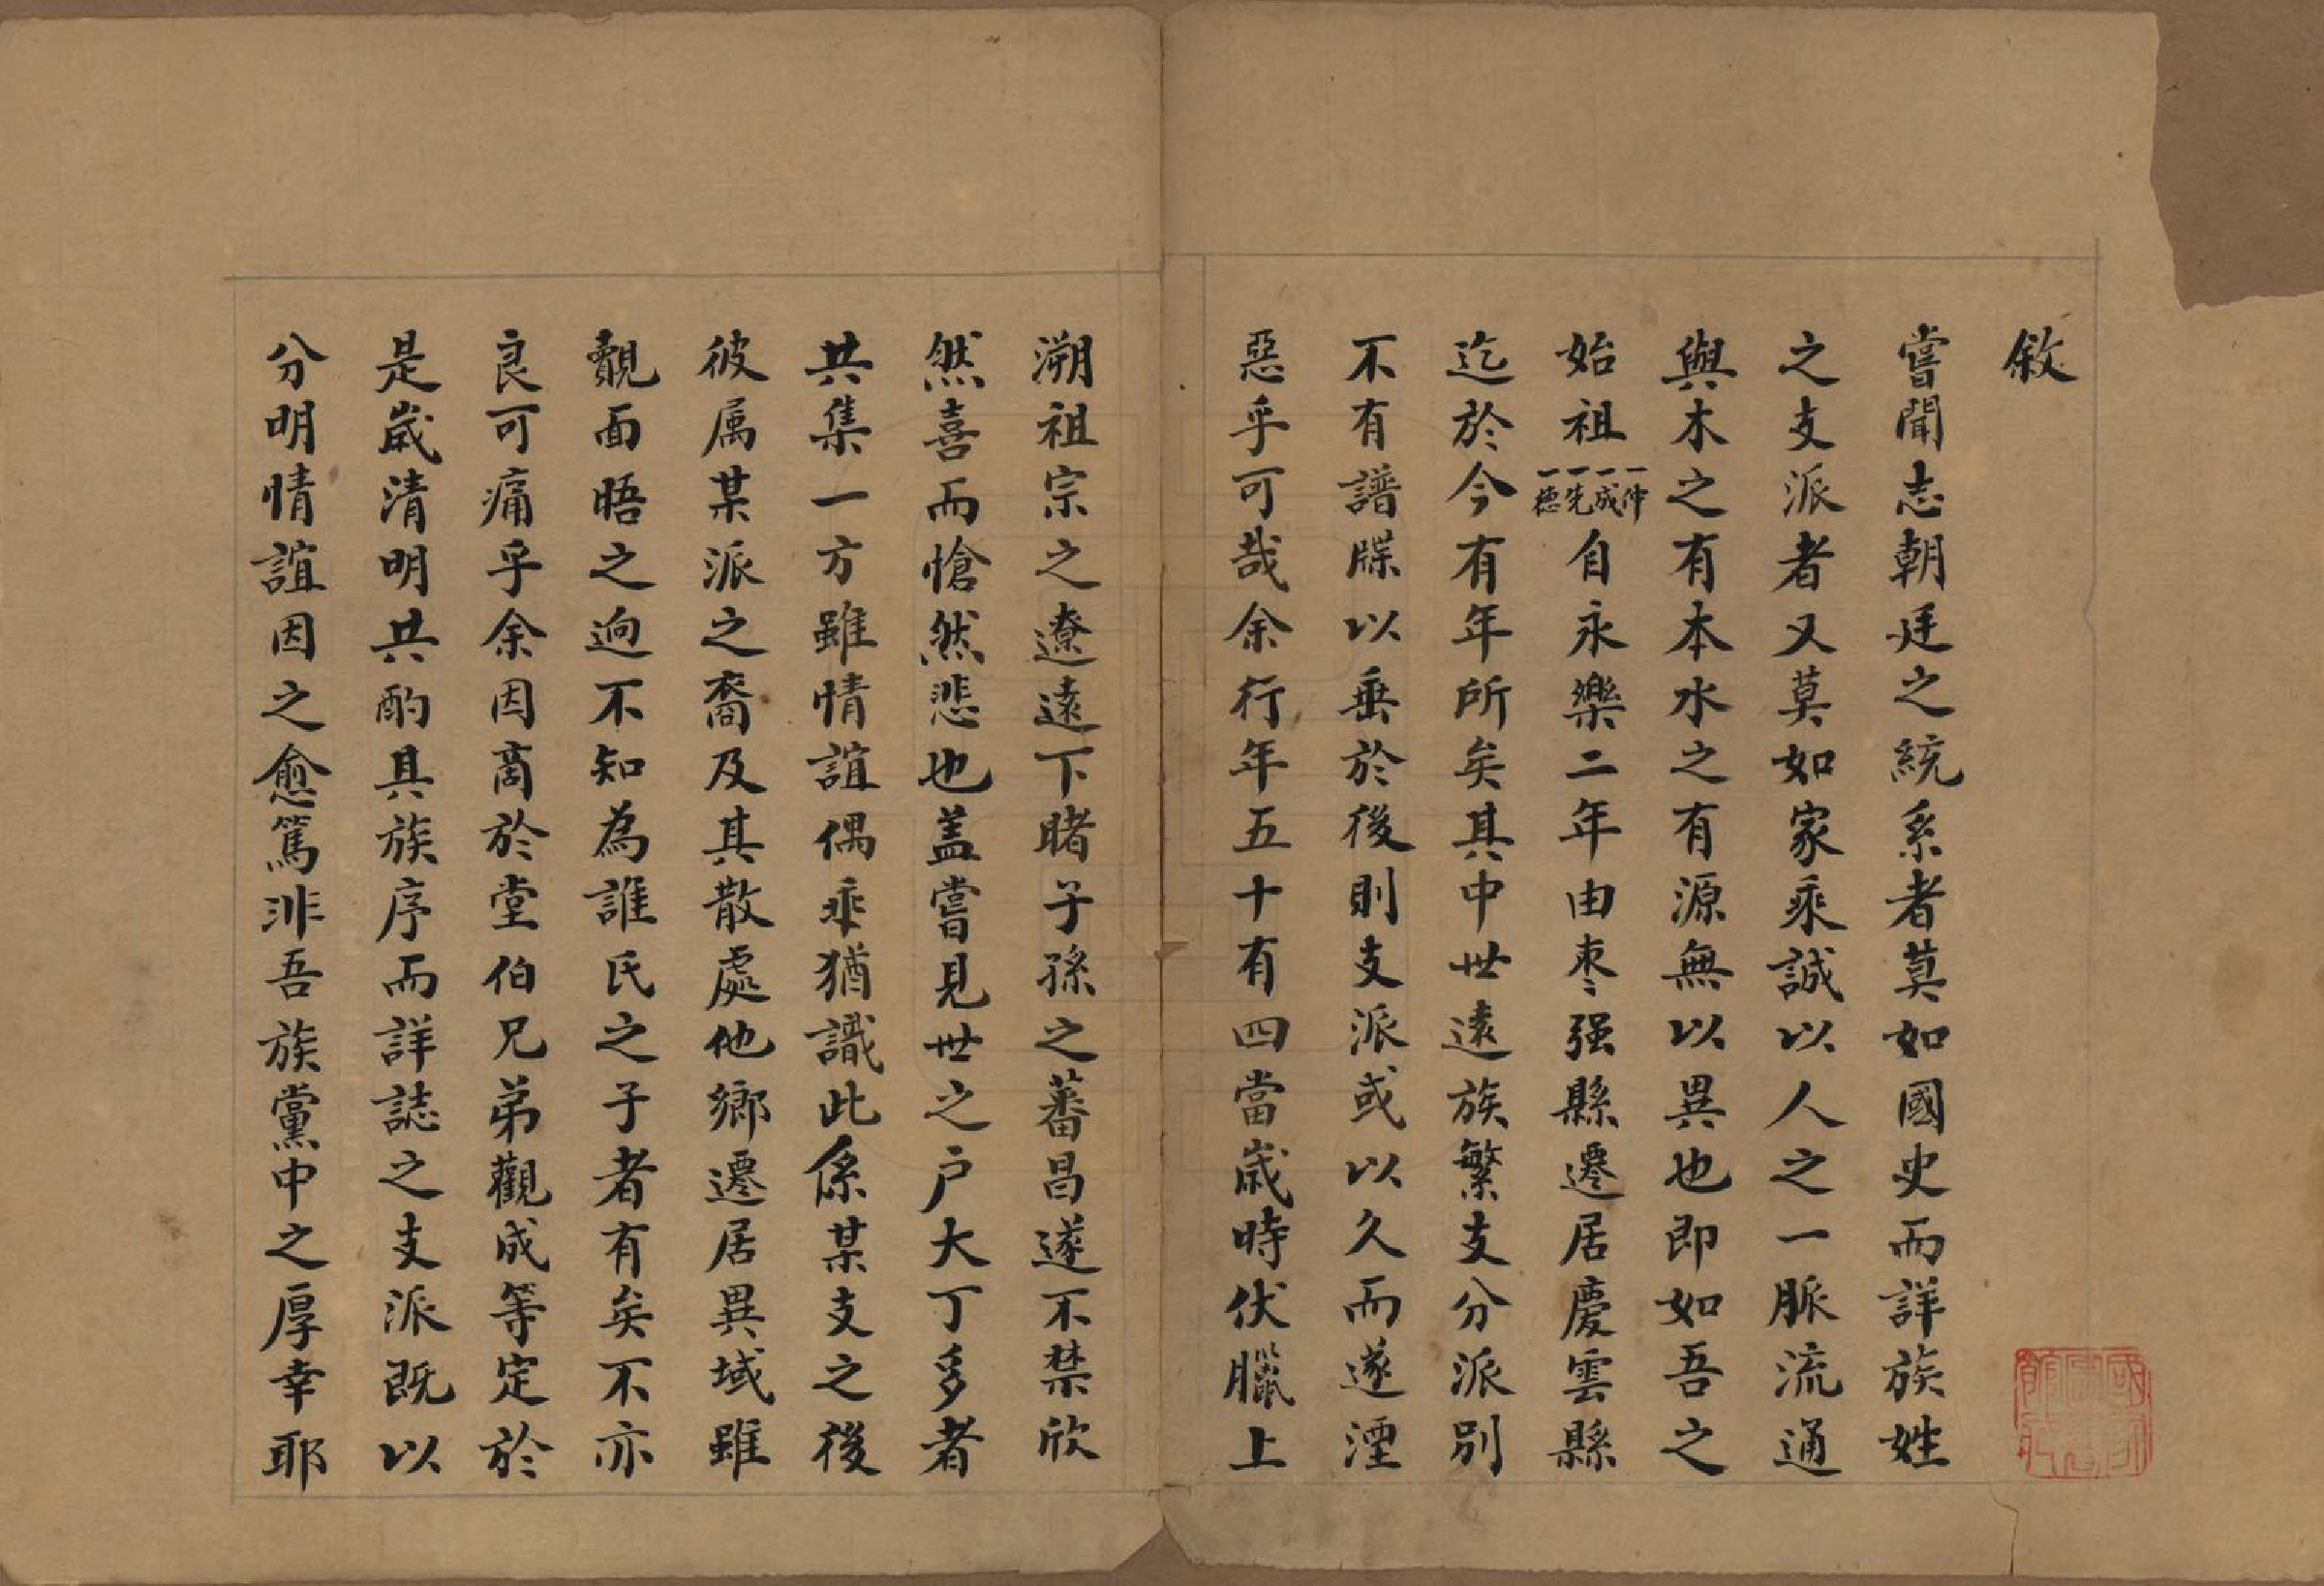 敘
嘗聞志朝廷之統系者莫如國史而詳族姓
之支派者又莫如家乘誠以人之一脈流通
與木之有本水之有源無以異也即如吾之
始祖一仲一成一先一德自永樂二年由枣强縣遷居慶雲縣
迄於今有年所矣其中世遠族繁支分派別
不有譜牒以垂於後則支派或以久而遂湮
惡乎可哉余行年五十有四當歲時伏臘上
溯祖宗之遼遠下睹子孫之蕃昌遂不禁欣
然喜而愴然悲也盖嘗見世之户大丁多者
共集一方雖情誼偶乖猶識此係某支之後
彼属某派之裔及其散處他鄉遷居異域雖
覿面晤之逈不知為誰氏之子者有矣不亦
良可痛乎余因商於堂伯兄弟觀成等定於
是歲清明共酌具族序而詳誌之支派既以
分明情誼因之愈篤非吾族黨中之厚幸耶